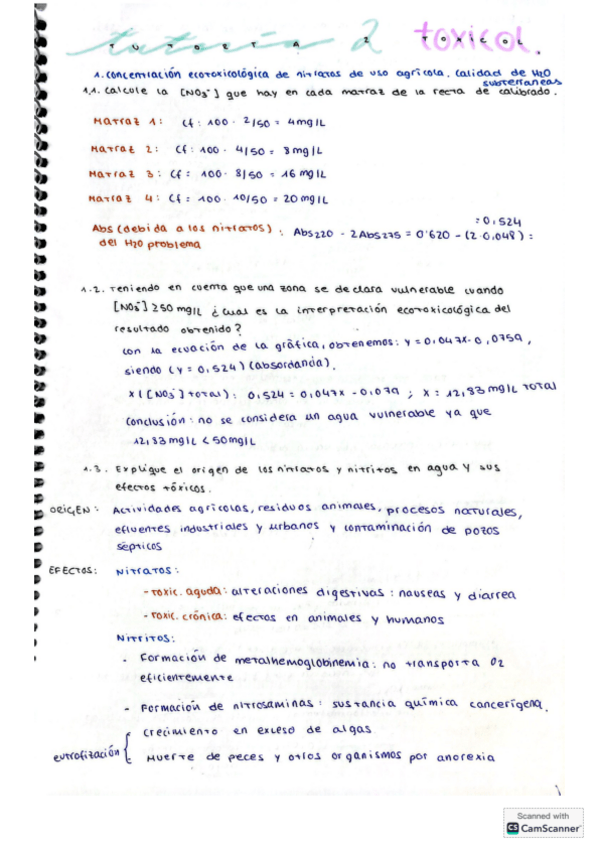 tutoria 2 toxicol.
TUTORIA 2 TOXICOL
1. Concentración ecotoxicológica de nitratos de uso agrícola. Calidad de H2O subterraneas
1.1. Calcule la [NO3-] que hay en cada matraz de la recta de calibrado.
Matraz 1: Cf: 100 · 2/50 = 4 mg/L
Matraz 2: Cf: 100 · 4/50 = 8 mg/L
Matraz 3: Cf = 100 · 8/50 = 16 mg/L
Matraz 4: Cf = 100 · 10/50 = 20 mg/L
Abs (debida a los nitratos) : Abs220 - 2Abs275 = 0'620 - (2·0,048) = = 0,524
del H2O problema
1.2. Teniendo en cuenta que una zona se declara vulnerable cuando
[NO3-] ≥ 50 mg/L ¿cual es la interpretación ecotoxicológica del
resultado obtenido?
con la ecuación de la gráfica, obtenemos: y = 0,047x - 0,0759,
siendo (y = 0,524) (absordancia).
x ([NO3-] total): 0,524 = 0,047x - 0,079 ; x = 12,83 mg/L total
Conclusión: no se considera un agua vulnerable ya que
12,83 mg/L < 50 mg/L
1.3. Explique el origen de los nitratos y nitritos en agua y sus
efectos tóxicos.
ORIGEN: Actividades agrícolas, residuos animales, procesos naturales,
efluentes industriales y urbanos y contaminación de pozos
sépticos
EFECTOS: Nitratos:
- toxic. aguda: alteraciones digestivas: nauseas y diarrea
- toxic. crónica: efectos en animales y humanos
Nitritos:
- Formación de metalhemoglobinemia: no transporta O2
eficientemente
- Formación de nitrosaminas: sustancia química cancerígena.
crecimiento en exceso de algas
eutrofización {
Muerte de peces y otros organismos por anorexia
1
Scanned with
CS CamScanner